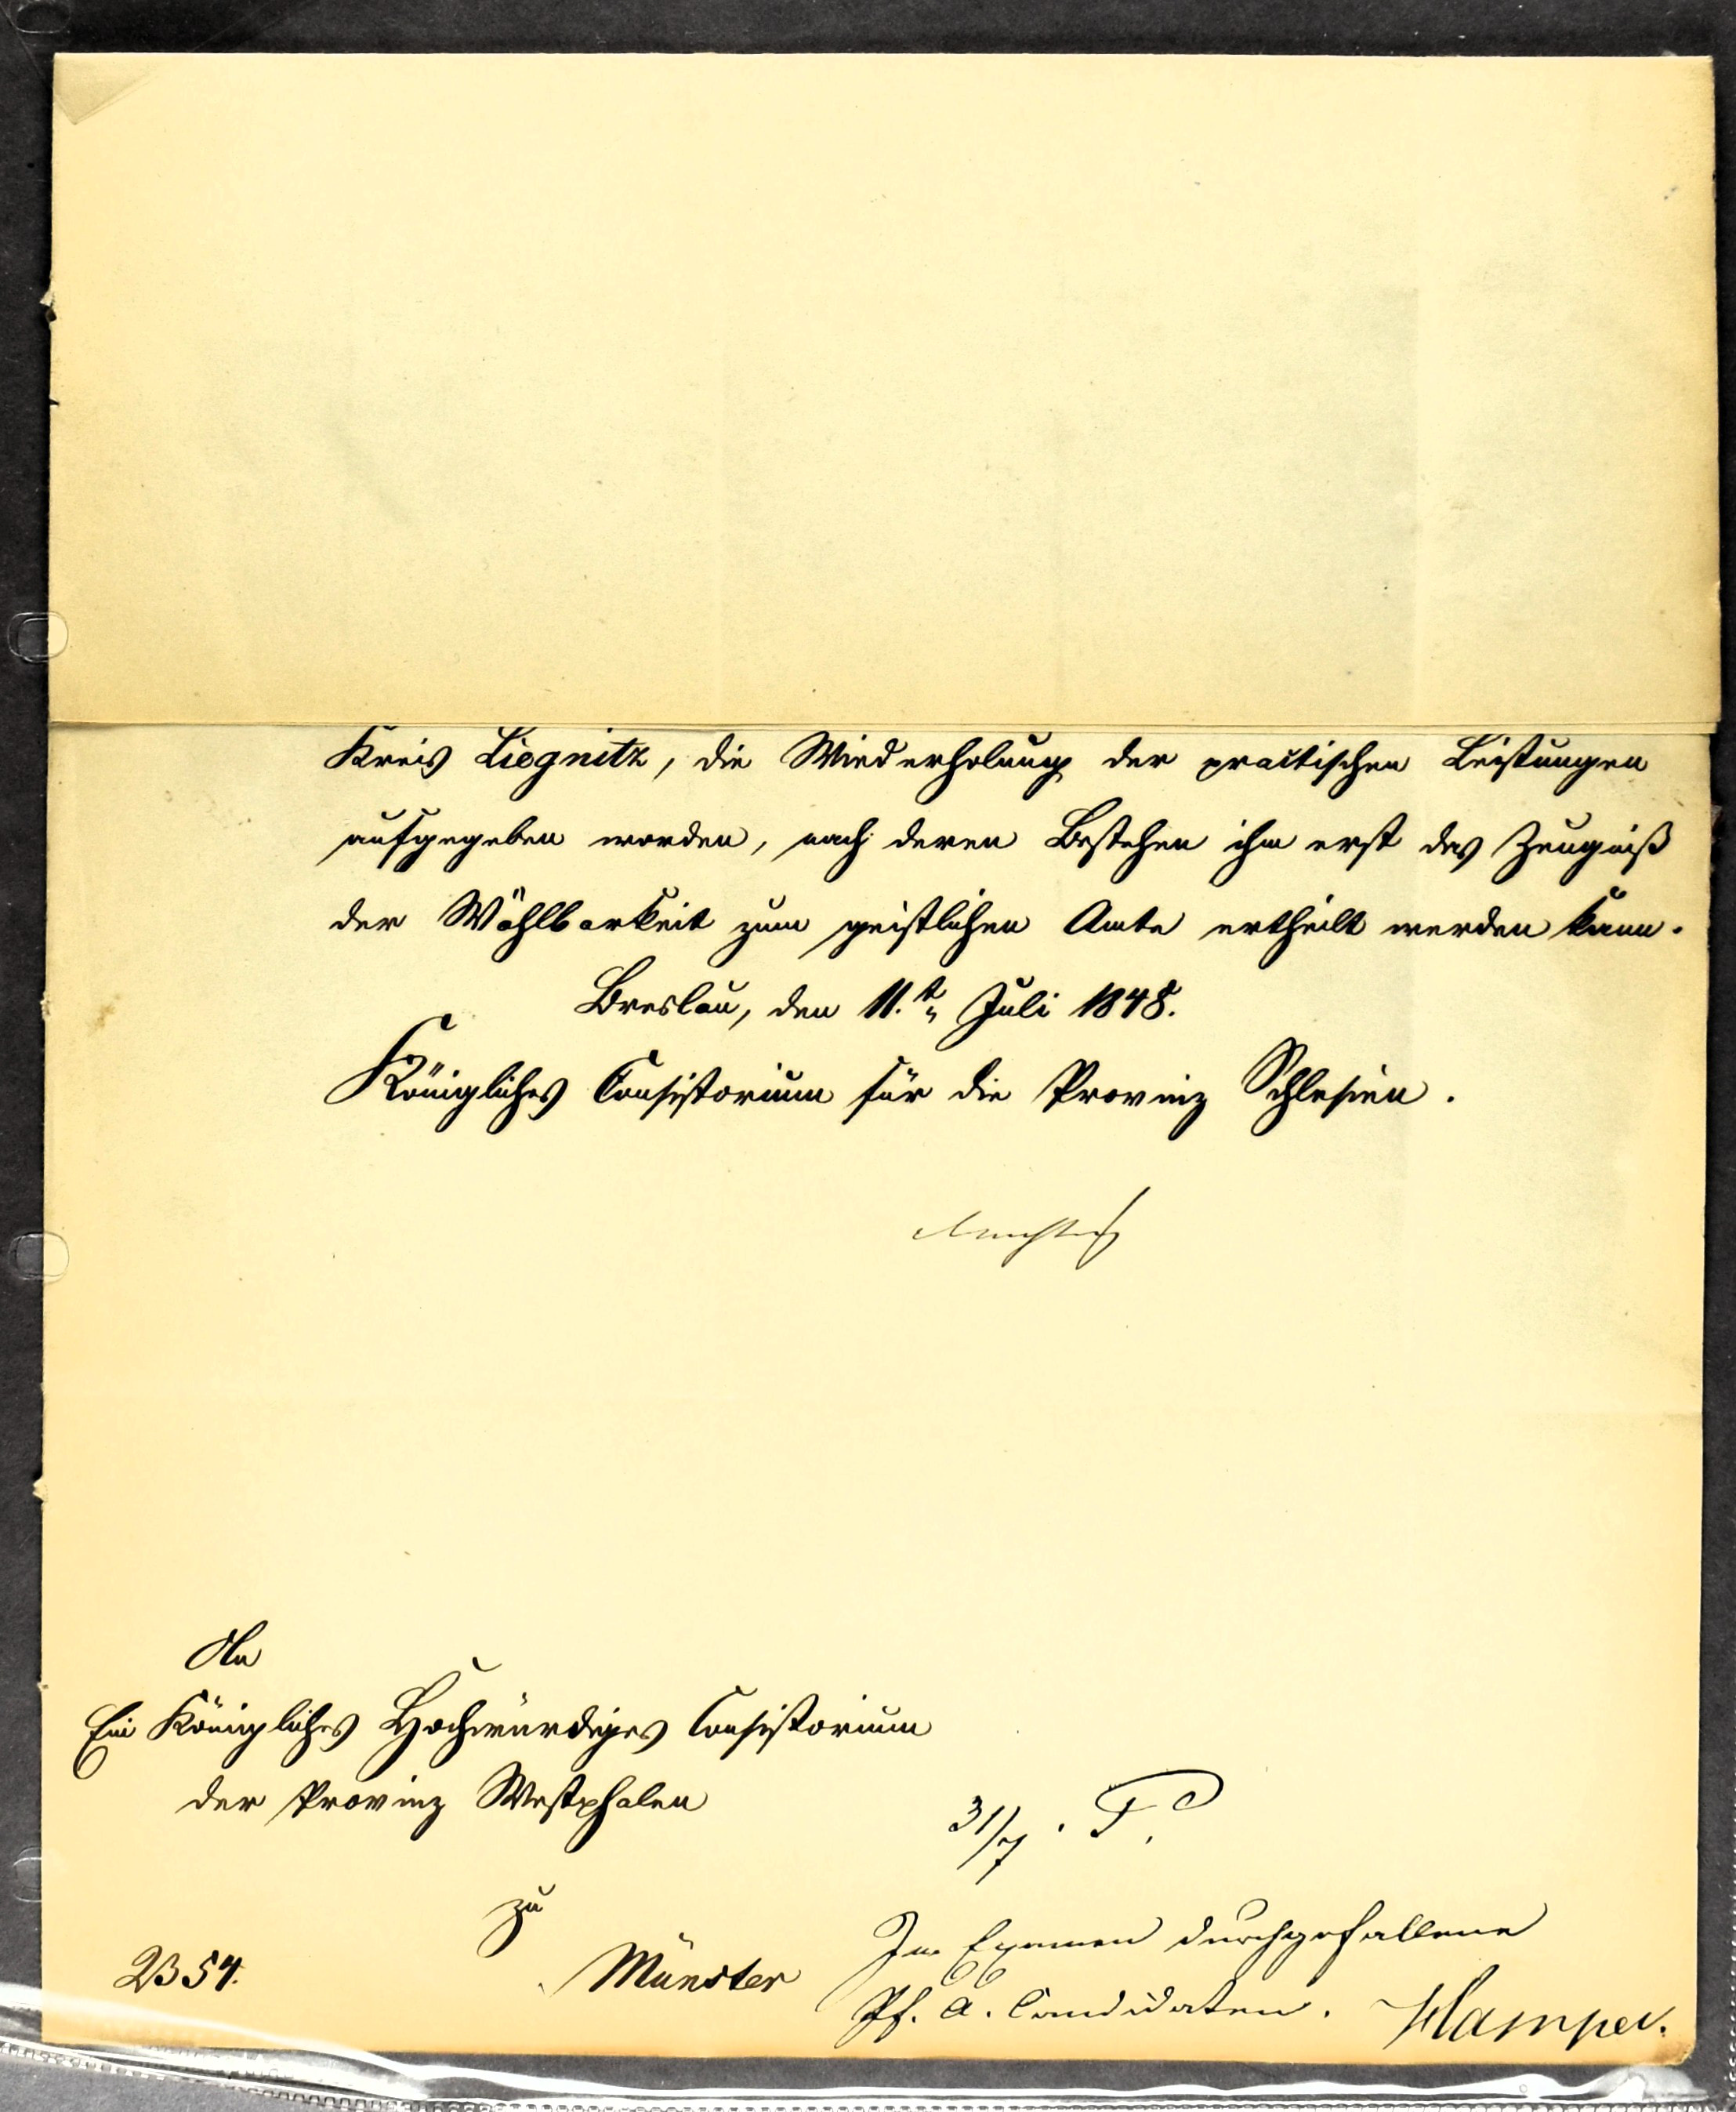 Kreis Liegnitz, die Wiederholung der practischen Leistungen
aufgegeben worden, nach deren Bestehen ihm erst das Zeugniß
der Wählbarkeit zum geistlichen Amte ertheilt werden kann.
Breslau, den 11.t„ Juli 1848.
Königliches Consistorium für die Provinz Schlesien.
An
Ein Königliches Hochwürdiges Consistorium
der Provinz Westphalen
zu
Münster
2354.
31/7. T.
Im Examen durchgefallene
Pf. A. Candidaten.